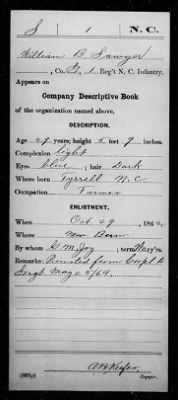 S 1 N.C.
William B. Sawyer
, Co. G, 1 Reg't N. C. Infantry.
Appears on
Company Descriptive Book
of the organization named above.
DESCRIPTION.
Age 29 years; height 5 feet 9 inches.
Complexion light
Eyes blue; hair Dark
Where born Tyrrell N.C
Occupation Farmer
ENLISTMENT.
When Oct 29, 186
Where New Bern
By whom ; term years.
Remarks: Promoted from Corpl to
Sergt May 2 5/64.
Copyist.